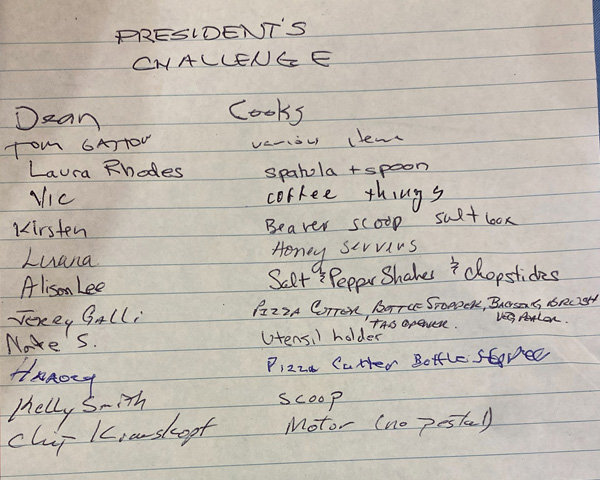 PRESIDENT'S
CHALLENGE
Dean Cooks
Tom GATTON various items
Laura Rhodes spatula + spoon
Vic coffee things
Kirsten Beaver scoop salt box
Luana Honey servers
Alison Lee Salt & Pepper Shakes & Chopsticks
Jerry Galli PIZZA CUTTER, BOTTLE STOPPER, BRUSH
TAB OPENER. VEG. PEALER.
Nate S. Utensil holder
Pizza Cutter Bottle stopper
Kelly Smith scoop
Chip Motor (no pestal)